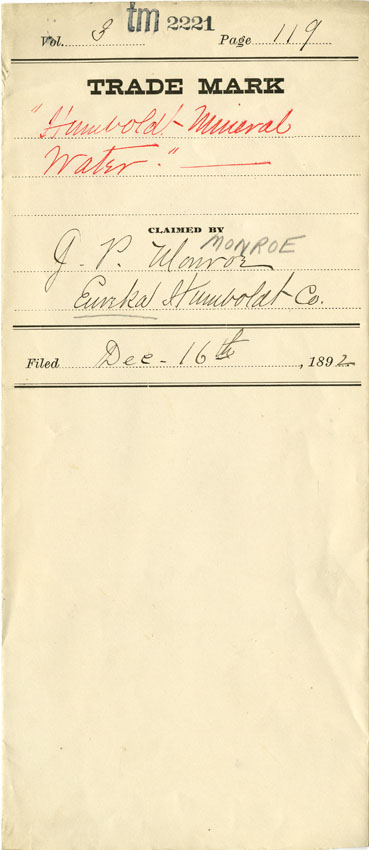 tm 2221
Vol. 3 Page 119
TRADE MARK
"Humboldt Mineral
Water."
CLAIMED BY
MONROE
J. P. Monroe
Eureka Humboldt Co.
Filed Dec - 16th, 1892